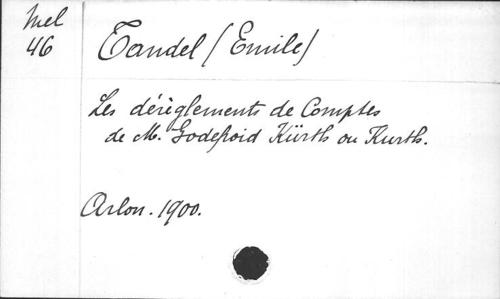 Mel
46
Tandel (Emile)
Les dérèglements de Comptes
de M. Godefroid Kürth ou Kurth.
Arlon. 1900.